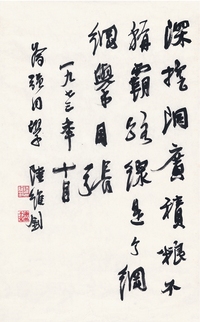 深挖洞廣積粮不
稱霸路線是个綱
綱舉目張
一九七三年十月
同學 陸維釗